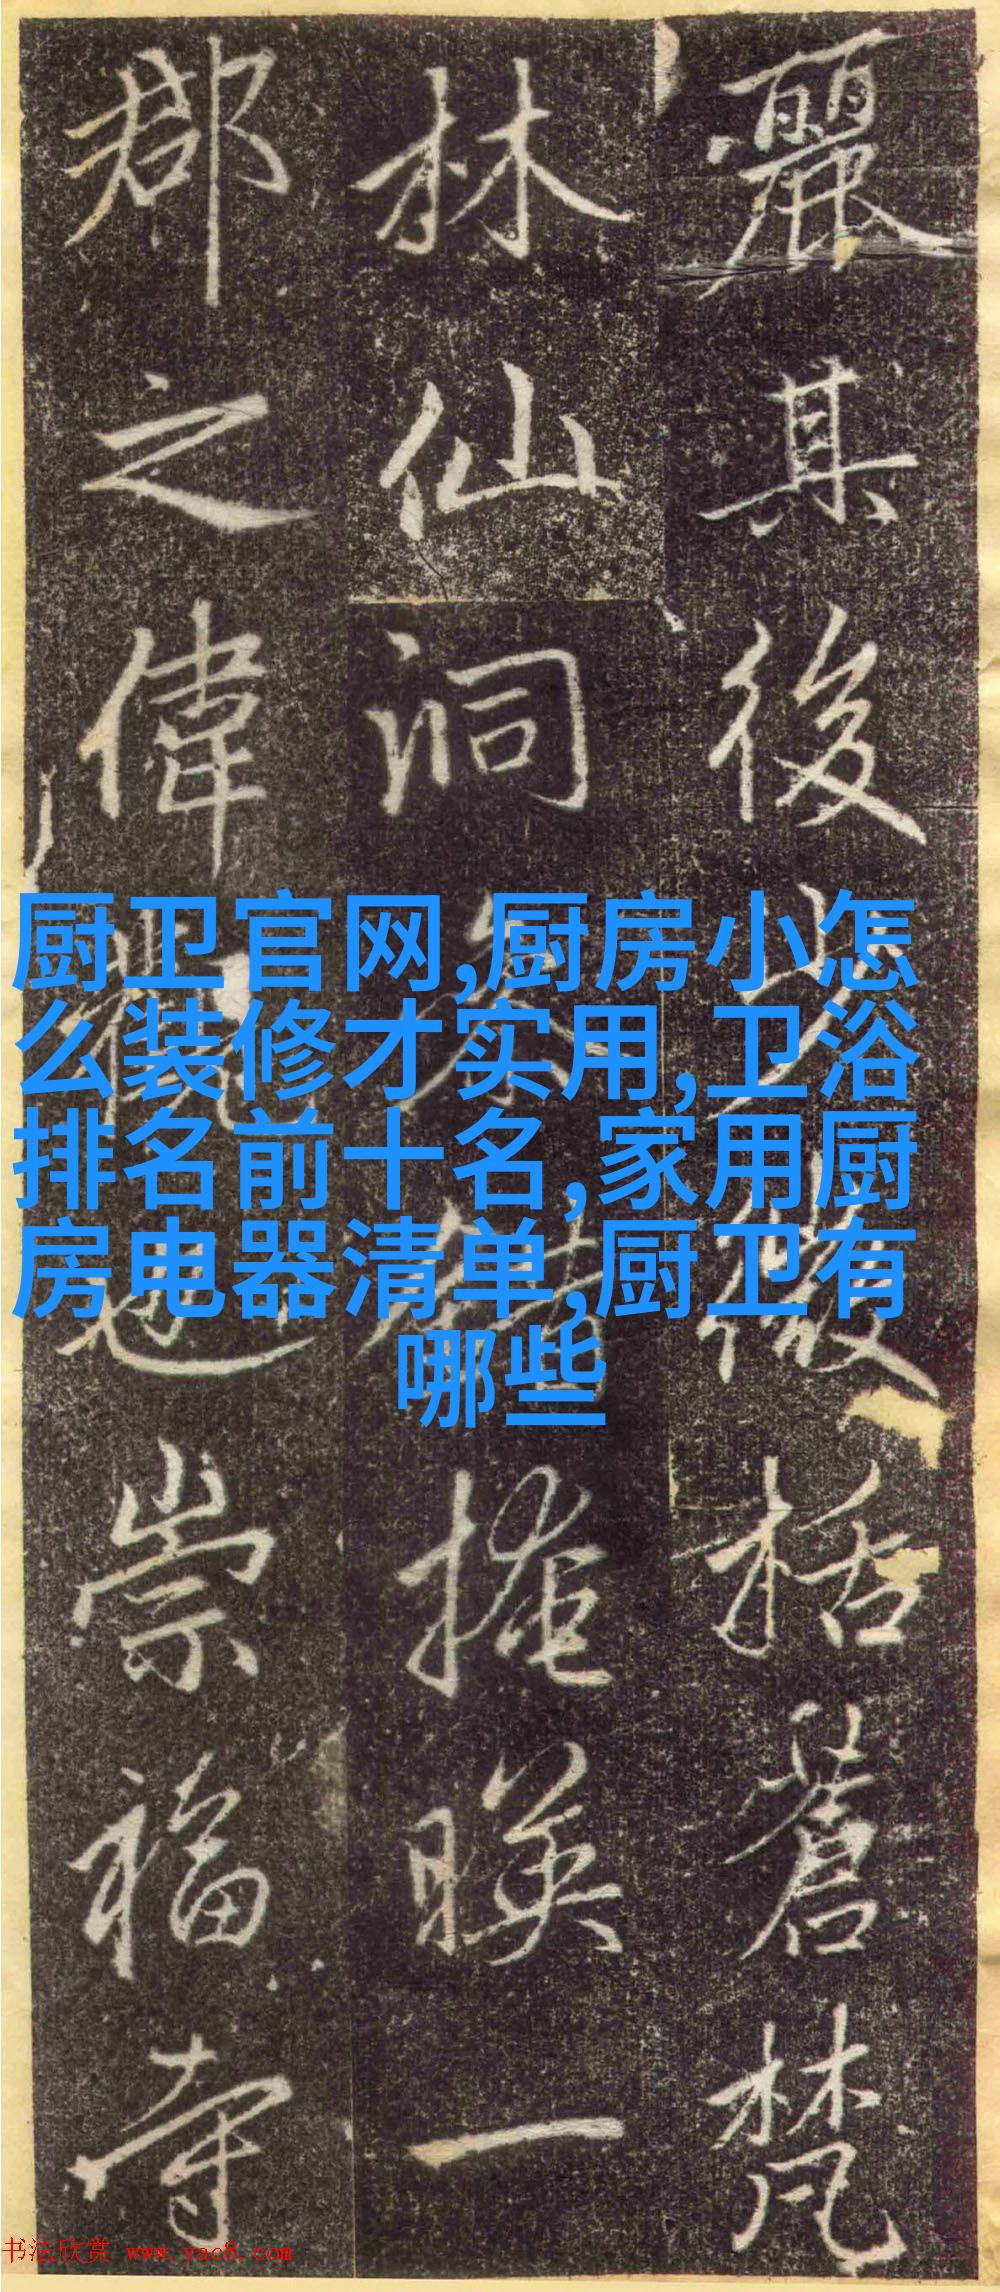 麗其後少微括蒼梵
林仙洞參錯掩暎一
郡之偉觀也崇福寺
厨卫官网,厨房小怎
么装修才实用,卫浴
排名前十名,家用厨
房电器清单,厨卫有
哪些
书法欣赏 www.yac8.com